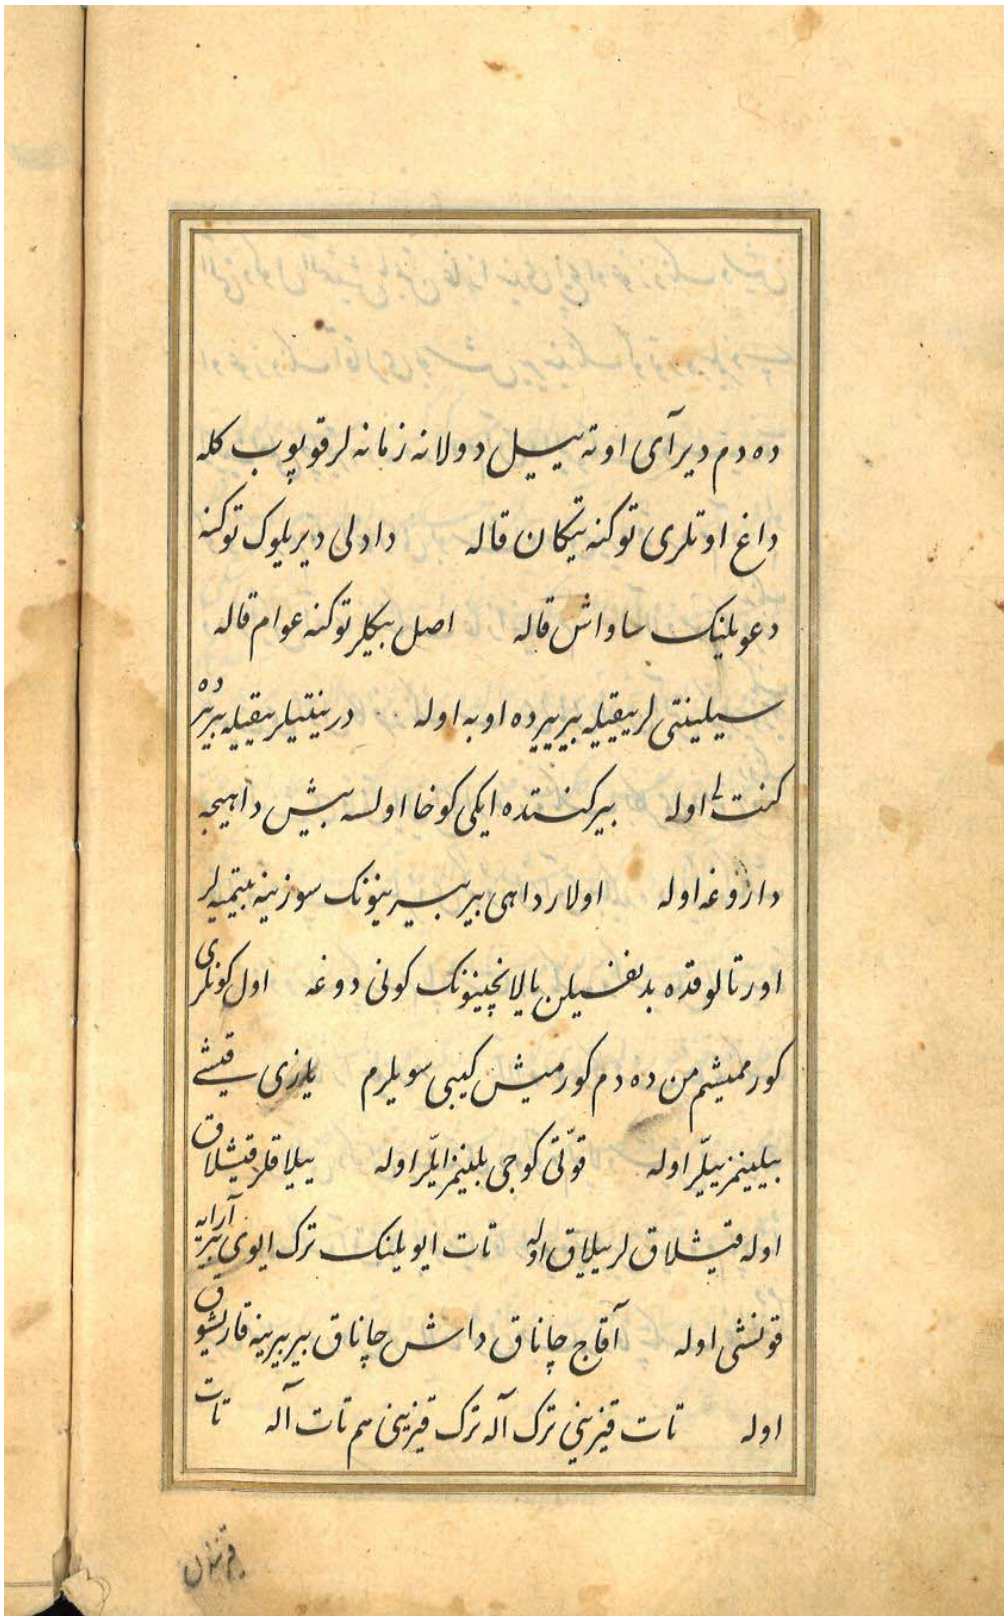 ده دم دیر آی اوته ییل دولانه زمانه لر قوپوب کله
داغ اوتلری توکنه تیکان قاله دادلی دیریلوک توکنه
دعویلنیک ساواش قاله اصل بیکلر توکنه عوام قاله
سیلینتی لر ییقیله بیر ییرده اوبه اوله درینتیلر ییقیله بیر ییرده
کنت اوله بیر کنتده ایکی کوخا اولسه بیش داهیجه
داروغه اوله اولار داهی بیر بیرینونک سوزینه بیتمیه لر
اورتالوقده بدنفسیلن یالانچینونک کونی دوغه اول کونلری
کورممیشم من ده دم کورمیش کیبی سویلرم یازی قیشی
بیلینمز ییلّر اوله قوّتی کوجی بلینمز ایلّر اوله ییلاقلر قیشلاق
اوله قیشلاق لر ییلاق اوله تات ایویلنک ترک ایوی بیر آرایه
قونشی اوله آقاج چاناق داش چاناق بیر بیرینه قاریشوق
اوله تات قیزینی ترک آله ترک قیزینی هم تات آله تات